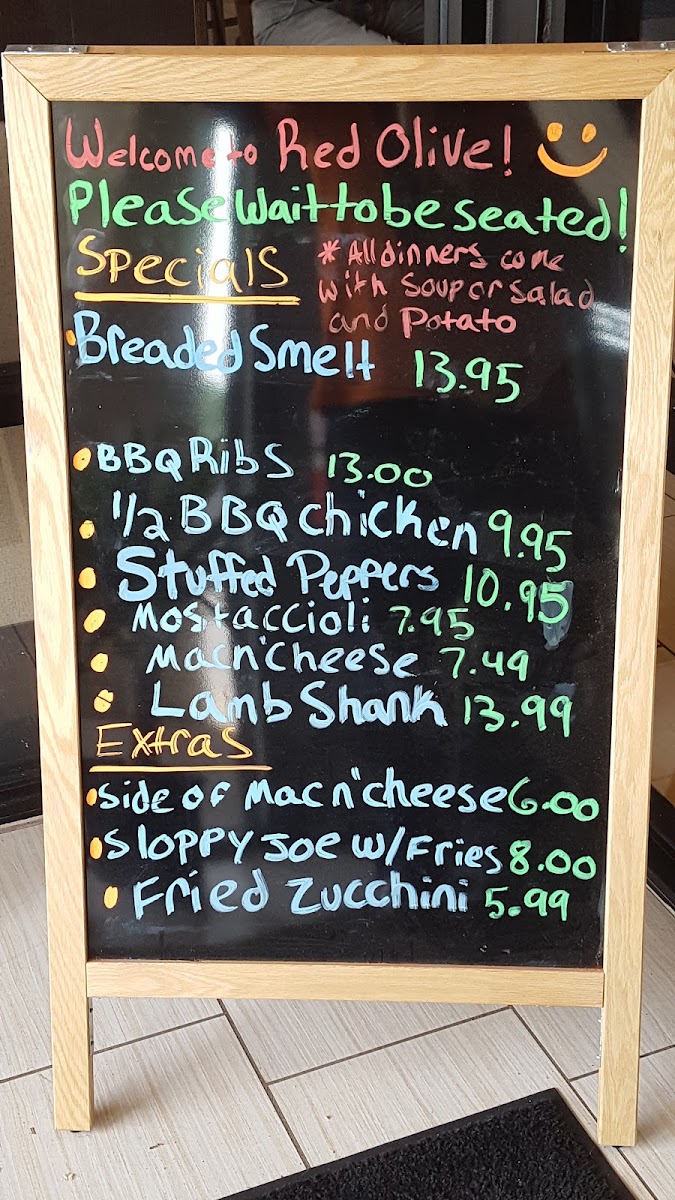 Welcome to Red Olive!
Please Wait to be seated!
Specials
* All dinners come
with Soup or Salad
and Potato
Breaded Smelt 13.95
BBQ Ribs 13.00
1/2 BBQ chicken 9.95
Stuffed Peppers 10.95
Mostaccioli 7.95
Mac n' Cheese 7.49
Lamb Shank 13.99
Extras
Side of Mac n' cheese 6.00
Sloppy Joe w/Fries 8.00
Fried Zucchini 5.99